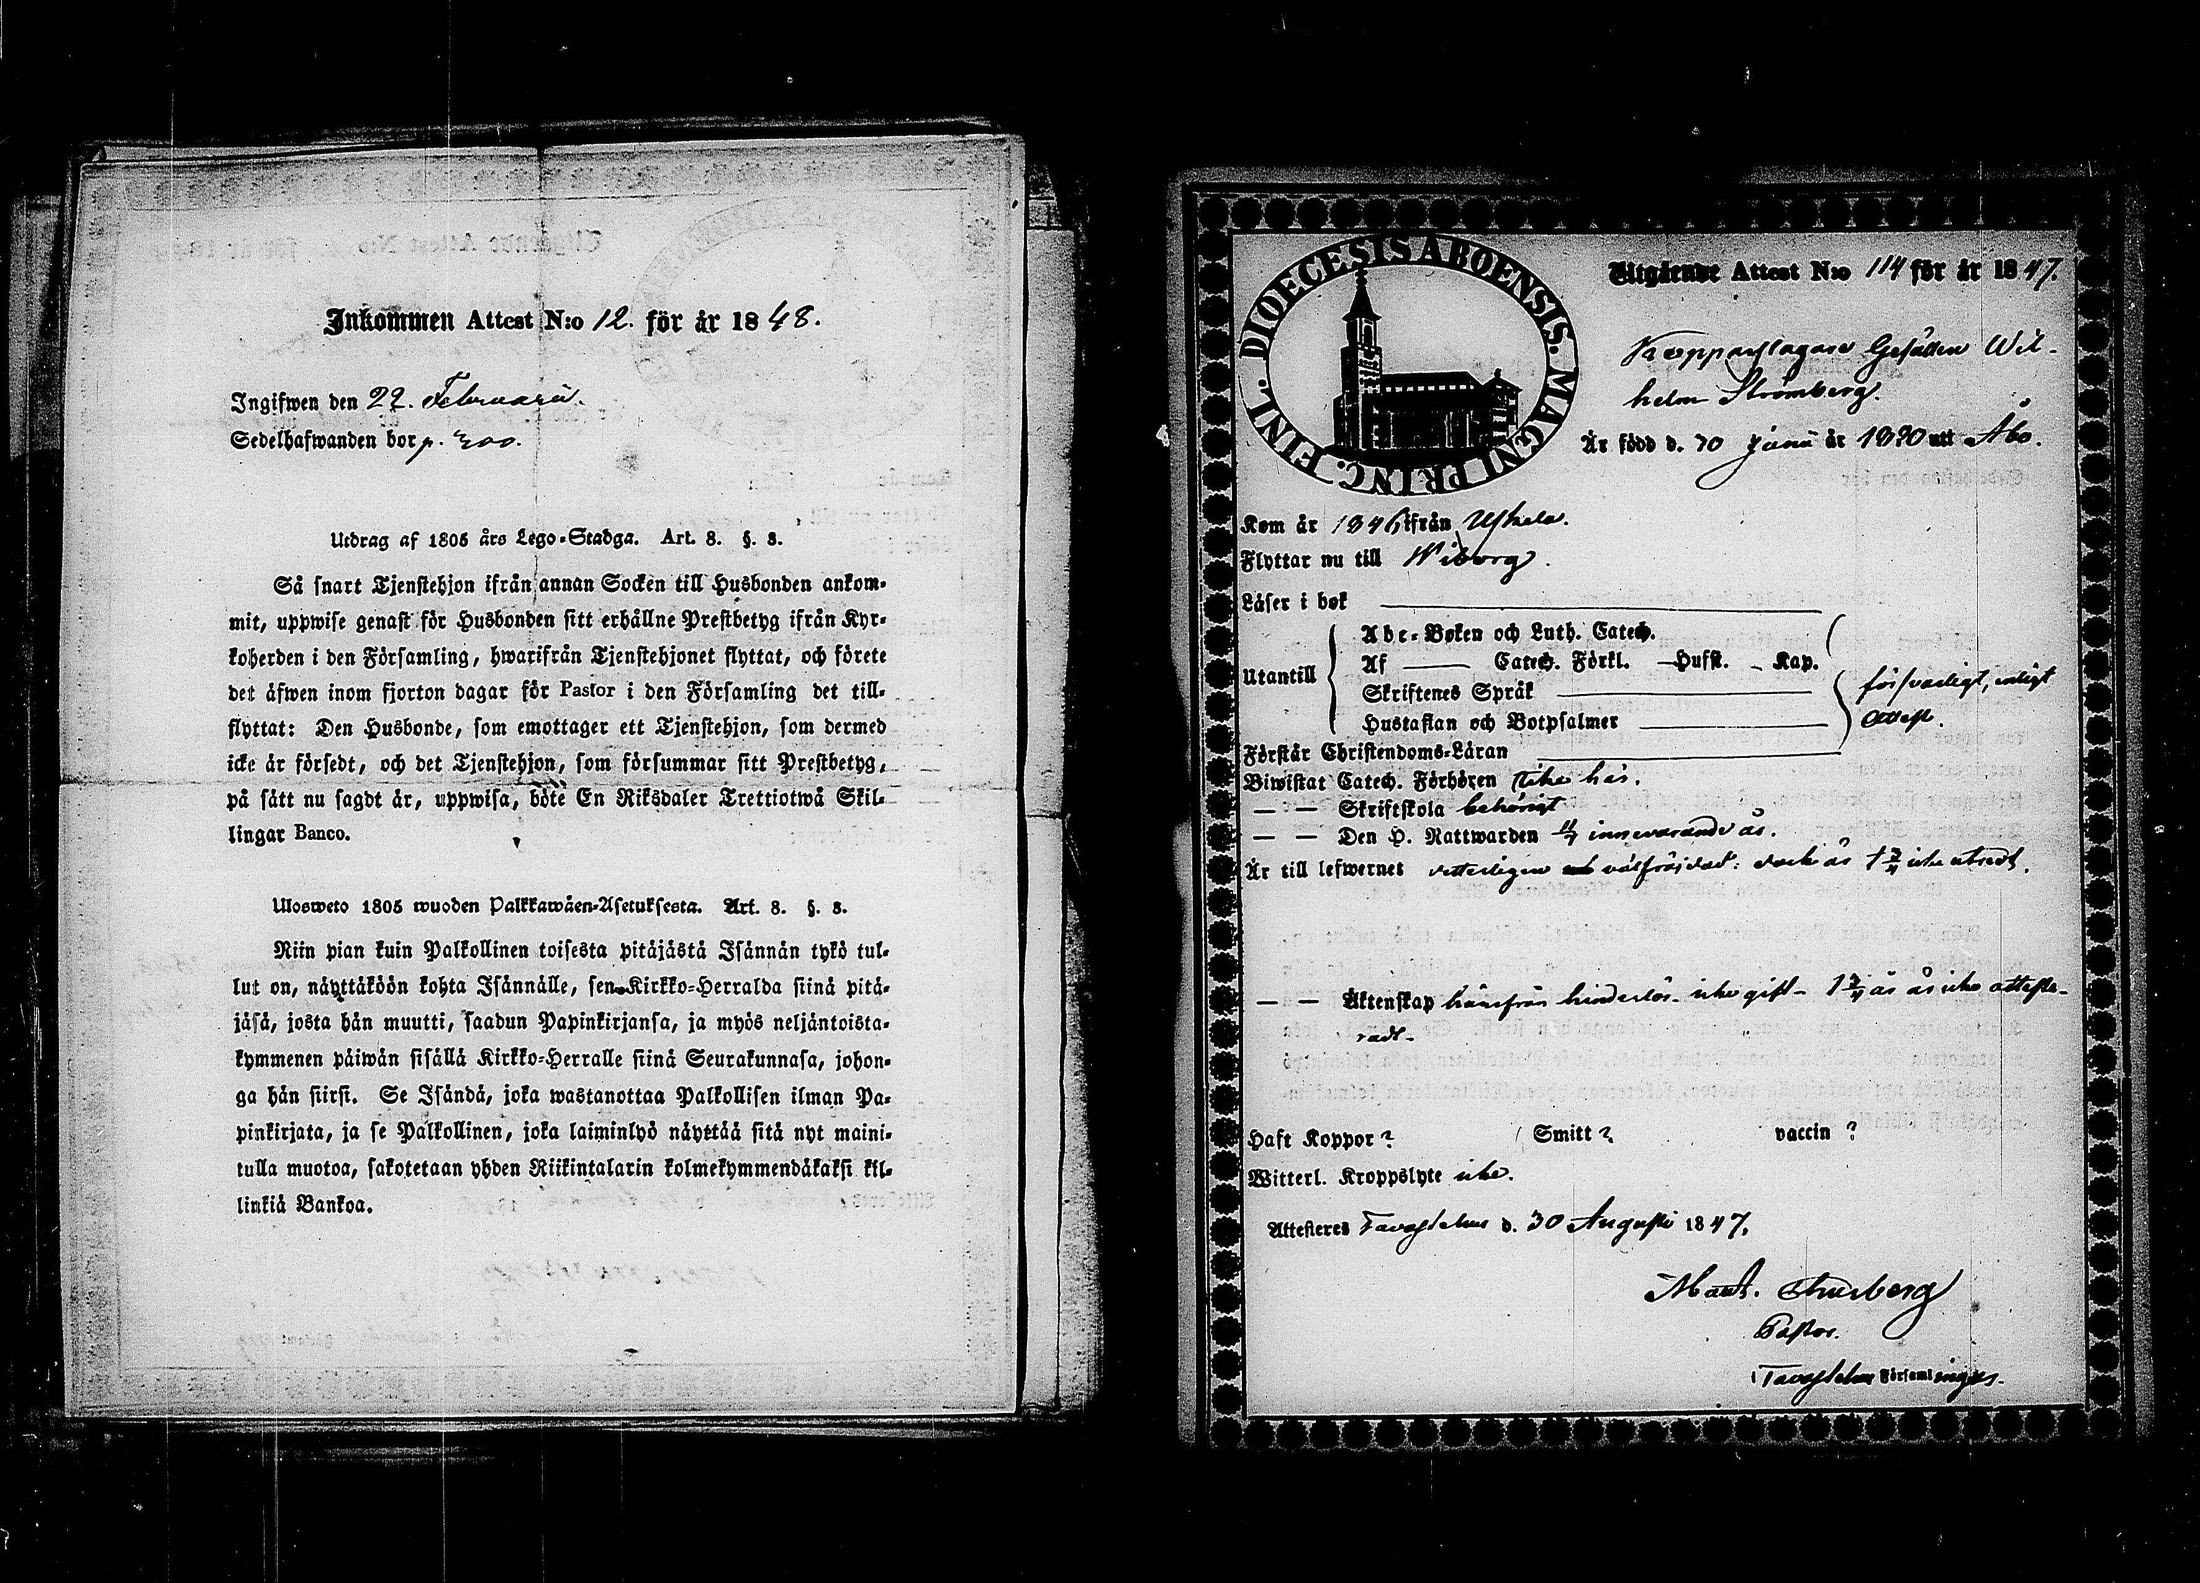 Inkommen Attest N:o 12. för år 1848.
Ingifwen den 22. Februarii.
Sedelhafwanden bor p. 200.
Utdrag af 1805 års Lego-Stadga. Art. 8. §. 8.
Så snart Tjenstehjon ifrån annan Socken till Husbonden ankom-
mit, uppwise genast för Husbonden sitt erhållne Prestbetyg ifrån Kyr-
koherden i den Församling, hwarifrån Tjenstehjonet flyttat, och förete
det äfwen inom fjorton dagar för Pastor i den Församling det till-
flyttat: Den Husbonde, som emottager ett Tjenstehjon, som dermed
icke är försedt, och det Tjenstehjon, som försummar sitt Prestbetyg,
på sätt nu sagdt är, uppwisa, böte En Riksdaler Trettiotwå Skil-
lingar Banco.
Ulosweto 1805 wuoden Palkkawäen-Asetuksesta. Art. 8. §. 8.
Niin pian kuin Palkollinen toisesta pitäjästä Isännän tykö tul-
lut on, näyttäköön kohta Isännälle, sen Kirkko-Herralda siinä pitä-
jäsä, josta hän muutti, saadun Papinkirjansa, ja myös neljäntoista-
kymmenen päiwän sisällä Kirkko-Herralle siinä Seurakunnasa, johon-
ga hän siirsi. Se Isändä, joka wastanottaa Palkollisen ilman Pa-
pinkirjata, ja se Palkollinen, joka laiminlyö näyttää sitä nyt maini-
tulla muotoa, sakotetaan yhden Riikintalarin kolmekymmendäkaksi kil-
linkiä Bankoa.
DIOECESIS ABOENSIS. MAGNI PRINC. FINL.
Utgående Attest N:o 114 för år 1847.
Kopparslagare Gesällen Wil-
helm Strömberg.
Är född d. 30 Junii år 1820 utt Åbo.
Kom år 1846 ifrån Uskela.
Flyttar nu till Wiborg.
Läser i bok
Abc-Boken och Luth. Catech.
Utantill Af Catech. Förkl. Husst. Kap.
Skriftenes Språk försvarligt, enligt
Hustaflan och Botpsalmer attest.
Förstår Christendoms-Läran
Biwistat Catech. Förhören icke här.
— — Skriftskola behörigt
— — Den H. Nattwarden innevarande år.
Är till lefwernet veterligen välfräjdad: icke utredt.
— — Äktenskap härifrån hinderslös icke gift - 1 3/4 år är icke atteste-
radt-
Haft Koppor? Smitt? vaccin?
Witterl. Kroppslyte icke.
Attesteres Tavastehus d. 30 Augusti 1847.
Pastor.
i Tavastehus Församlingar.